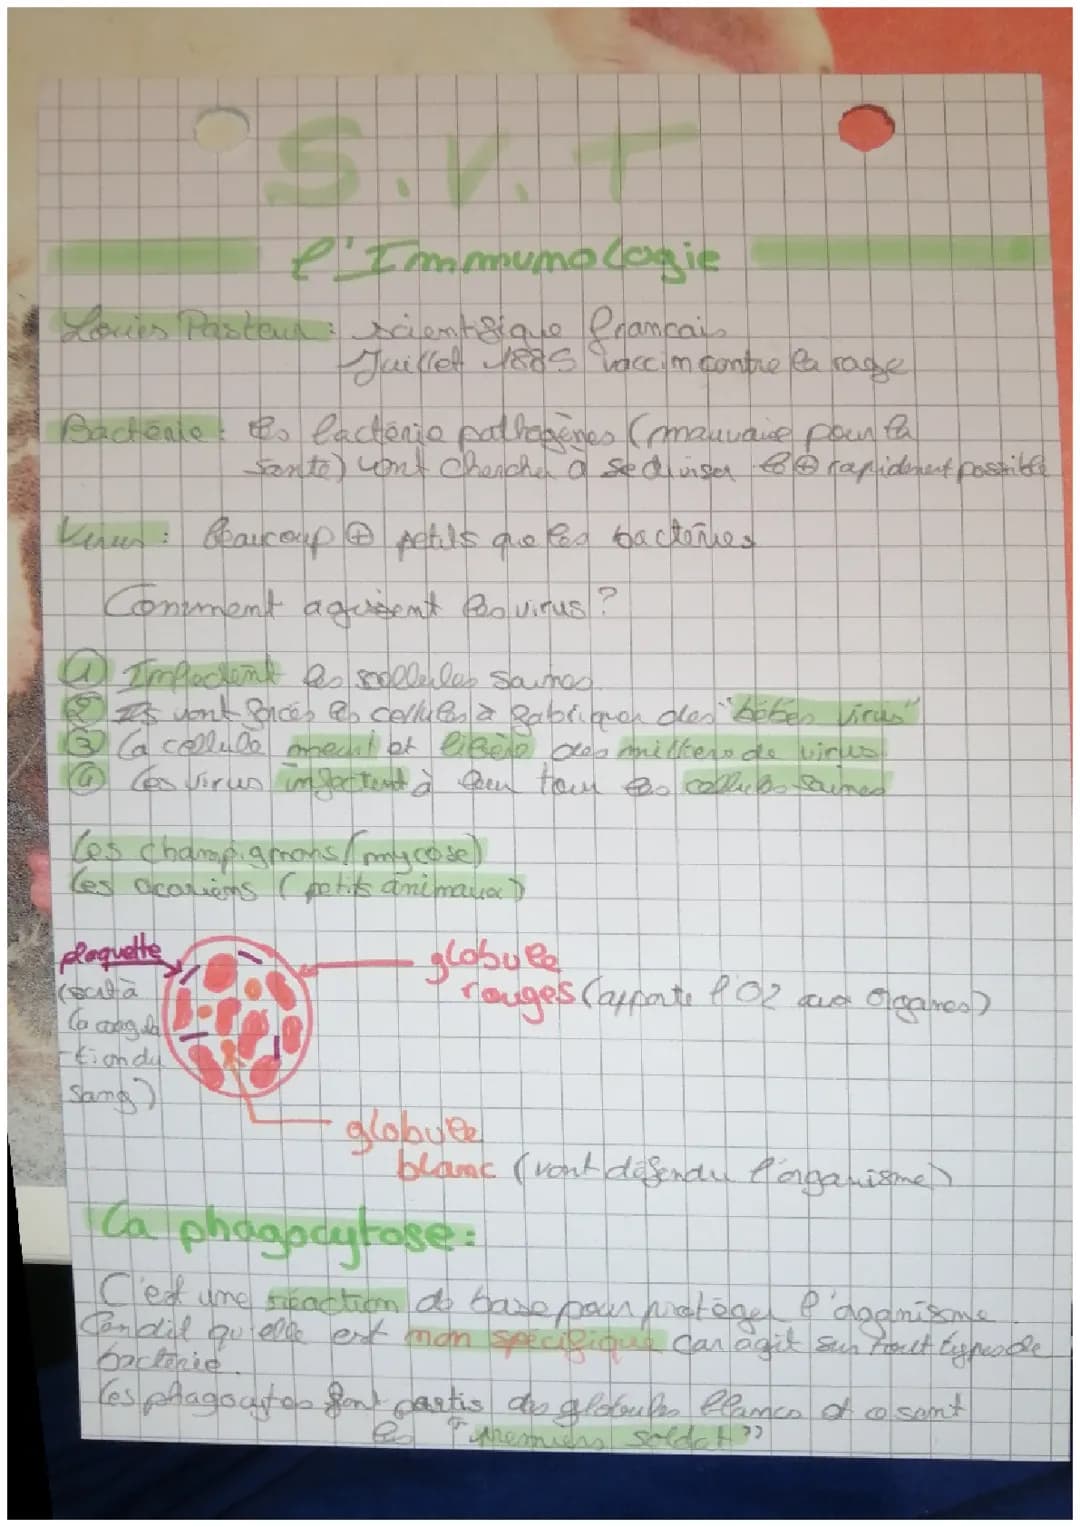 S.V.T
l'Immunologie
Louis Pasteur : scientifique français
Juillet 1885 vaccin contre la rage
Bactérie : les bactérie pathogènes (mauvaise pour la
santé) vont chercher à se diviser le ⊕ rapidement possible
Virus : Beaucoup ⊕ petits que les bactéries
Comment agissent les virus ?
① Imfectent les cellules saines
② Ils vont forcés les cellules à fabriquer des "bébés virus"
③ La cellule meurt et libère des milliers de virus
④ Les virus infectent à leur tour les cellules saines
Les champignons (mycose)
Les acariens (petits animaux)
plaquette
(sert à
la coagula
-tion du
sang)
globule
rouges (apporte l'O2 aux organes)
globule
blanc (vont défendre l'organisme)
La phagocytose :
C'est une réaction de base pour protéger l'organisme.
On dit qu'elle est non spécifique car agit sur tout types de
bactérie.
Les phagocytes font partis des globules blancs et ce sont
les "premiers soldat"